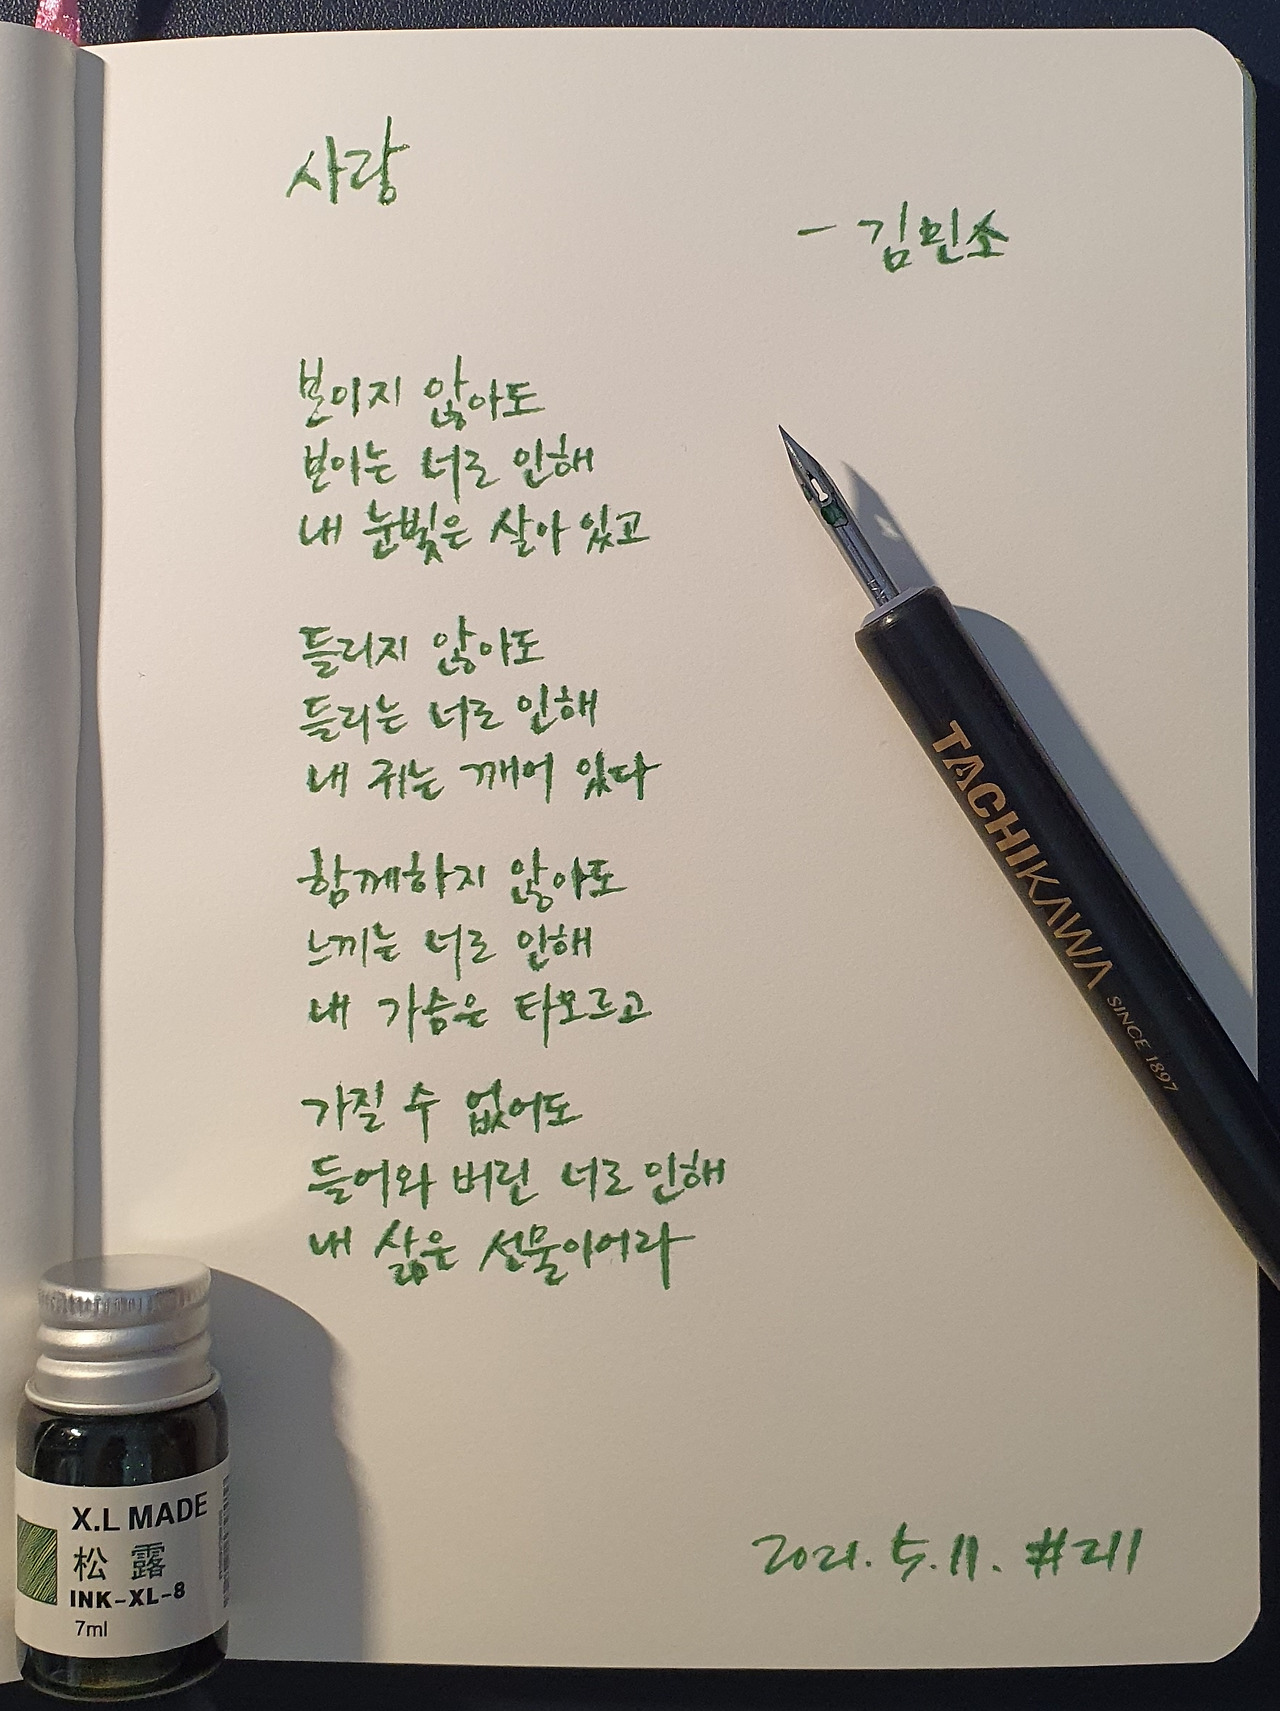 사랑
- 김민소
보이지 않아도
보이는 너로 인해
내 눈빛은 살아 있고
들리지 않아도
들리는 너로 인해
내 귀는 깨어 있다
함께하지 않아도
느끼는 너로 인해
내 가슴은 타오르고
가질 수 없어도
들어와 버린 너로 인해
내 삶은 선물이어라
2021. 5. 11. #211
TACHIKAWA SINCE 1897
X.L MADE
松 露
INK-XL-8
7ml